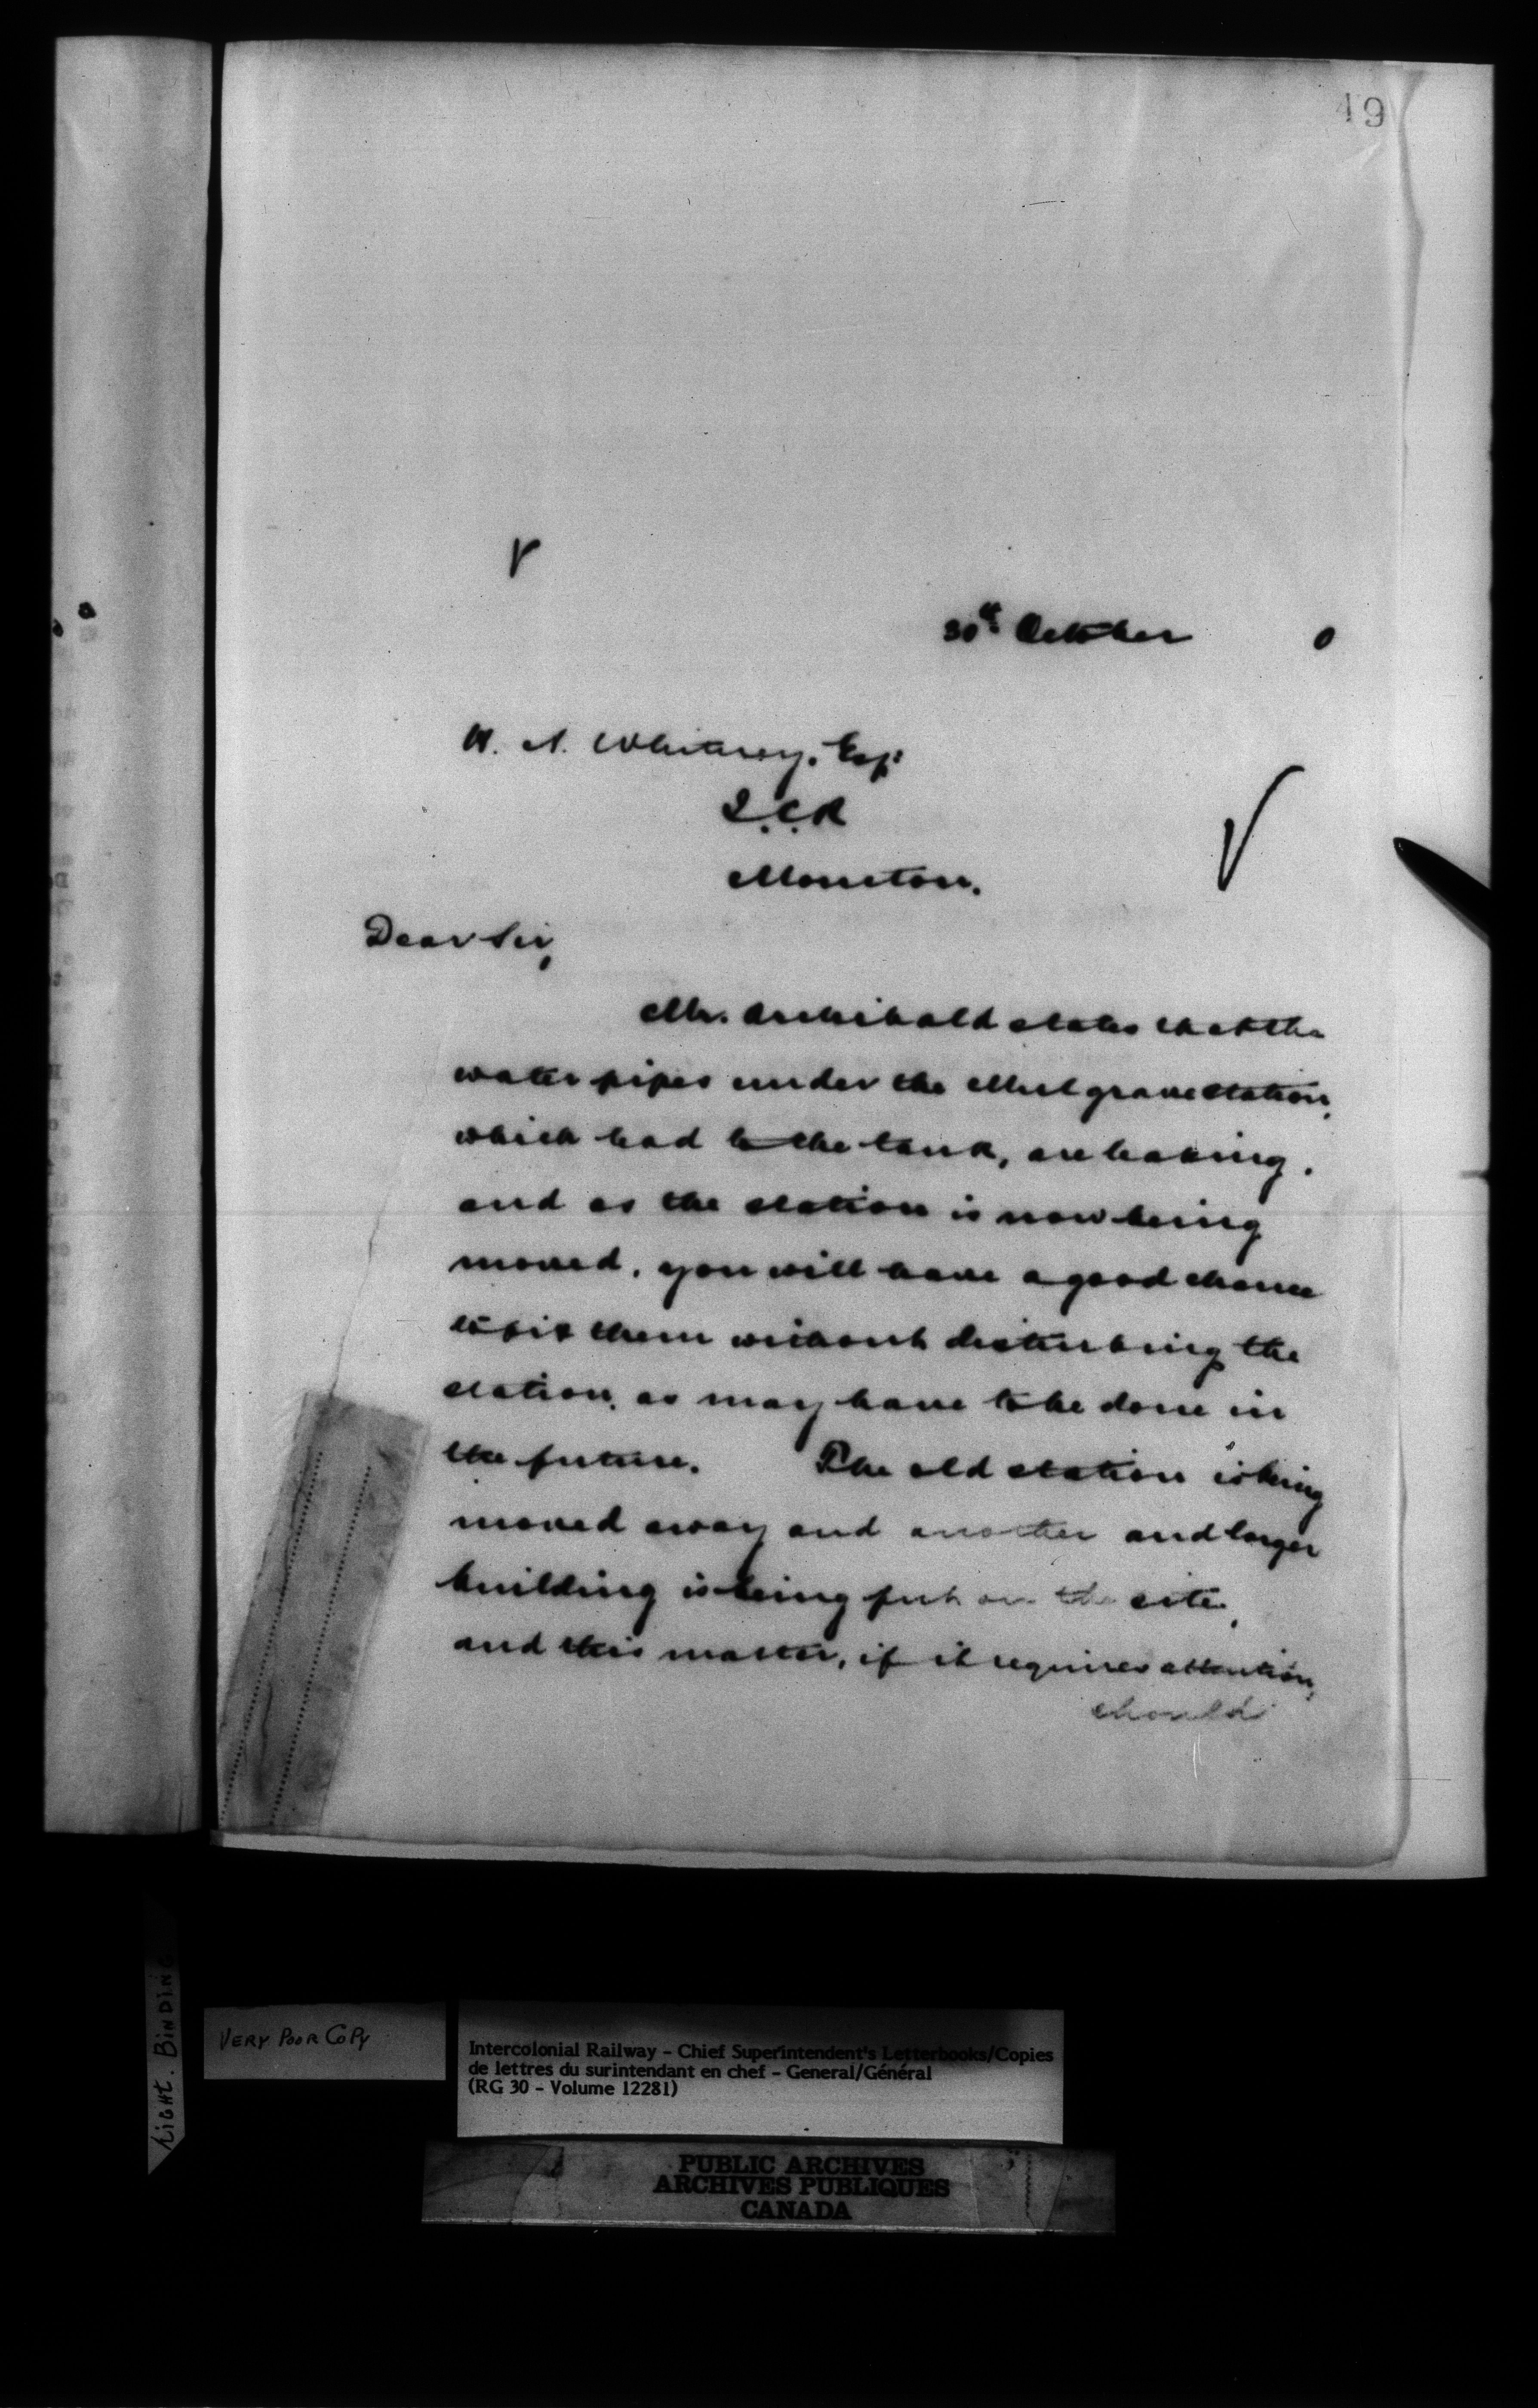 49
30th October 0
H. A. Whitney, Esq:
I.C.R
Moncton.
Dear Sir,
Mr. Archibald states that the
water pipes under the Mulgrave station,
which lead to the tank, are leaking,
and as the station is now being
moved, you will have a good chance
to fix them without disturbing the
station, as may have to be done in
the future. The old station is being
moved away and another and larger
building is being put on the site,
and this matter, if it requires attention,
should
LIGHT. BINDING
VERY POOR COPY
Intercolonial Railway - Chief Superintendent's Letterbooks/Copies
de lettres du surintendant en chef - General/Général
(RG 30 - Volume 12281)
PUBLIC ARCHIVES
ARCHIVES PUBLIQUES
CANADA